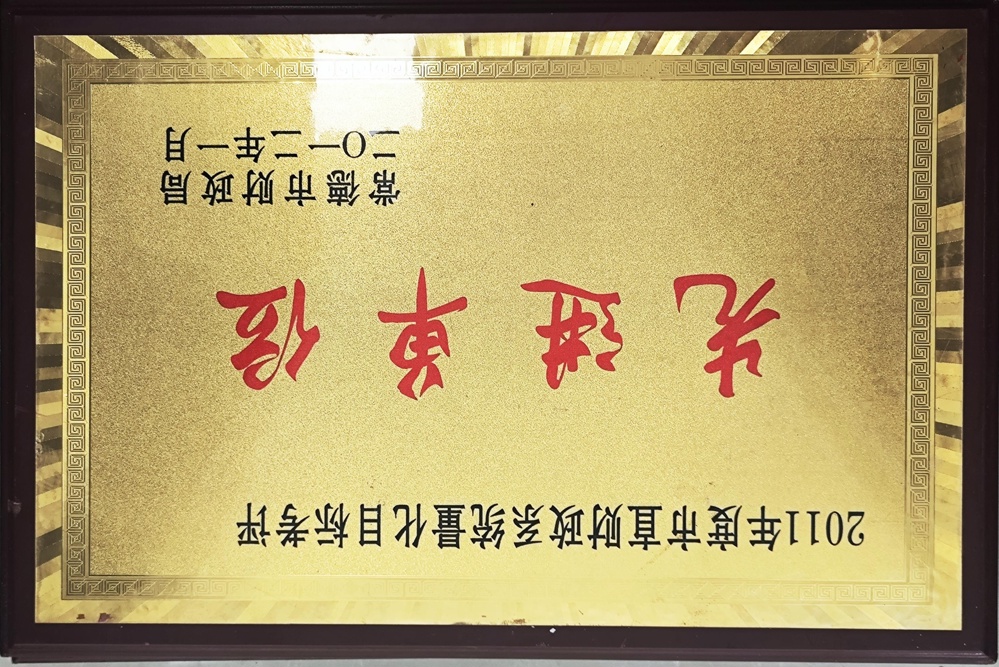 2011年度市直财政系统量化目标考评
先进单位
常德市财政局
二〇一二年一月